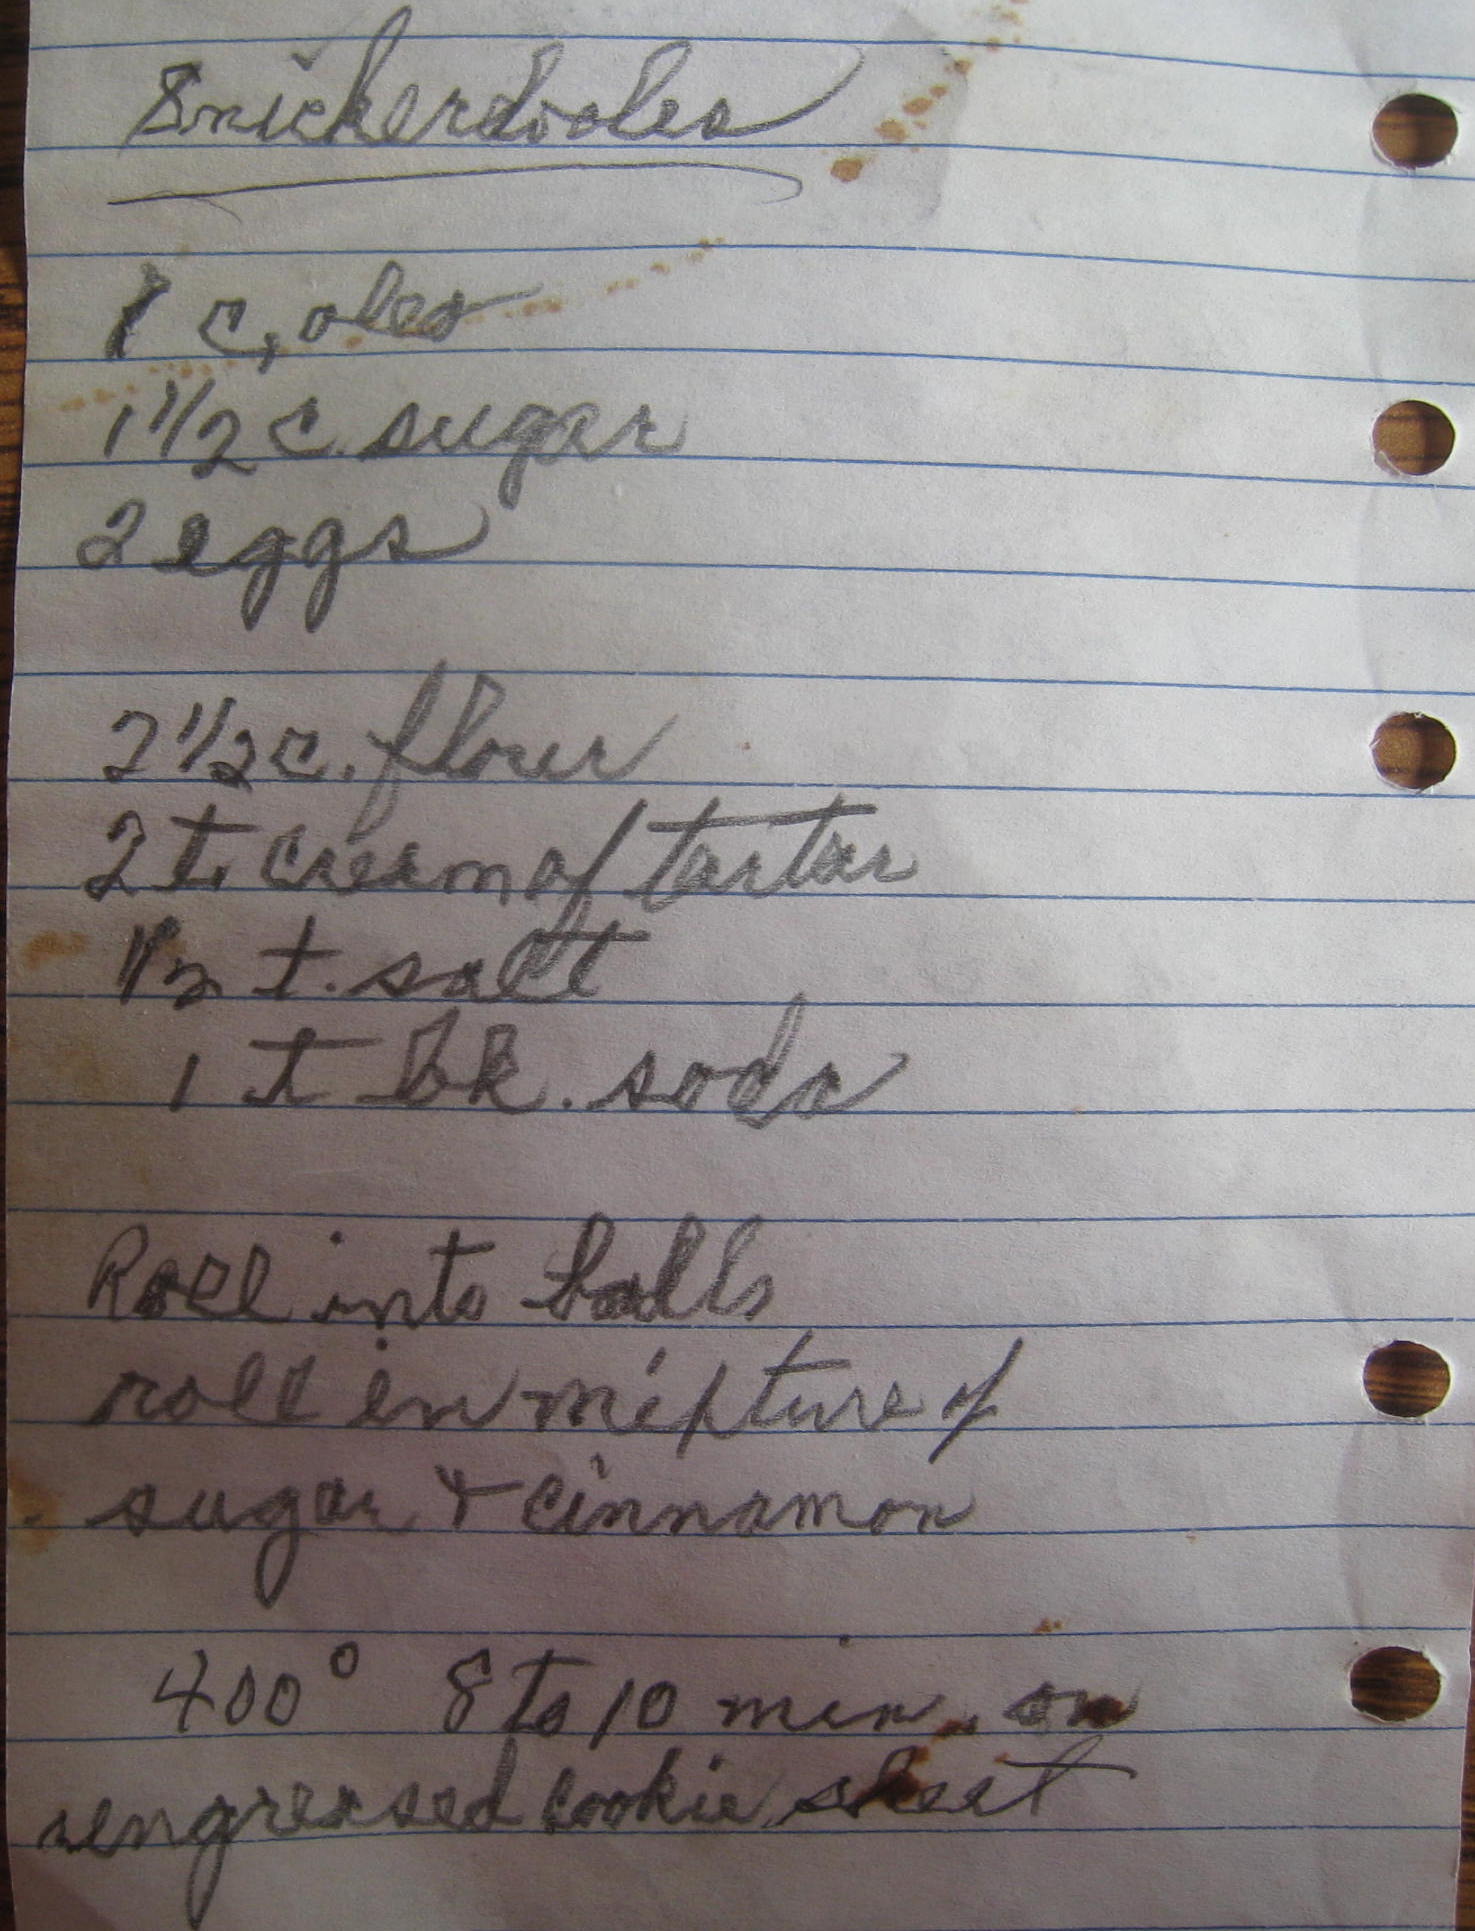 Snickerdoodles
1 c, oleo
1 1/2 c. sugar
2 eggs
2 1/2 c. flour
2 t. cream of tartar
1/2 t. salt
1 t bk. soda
Roll into balls
roll in mixture of
sugar & cinnamon
400° 8 to 10 min. on
ungreased cookie sheet